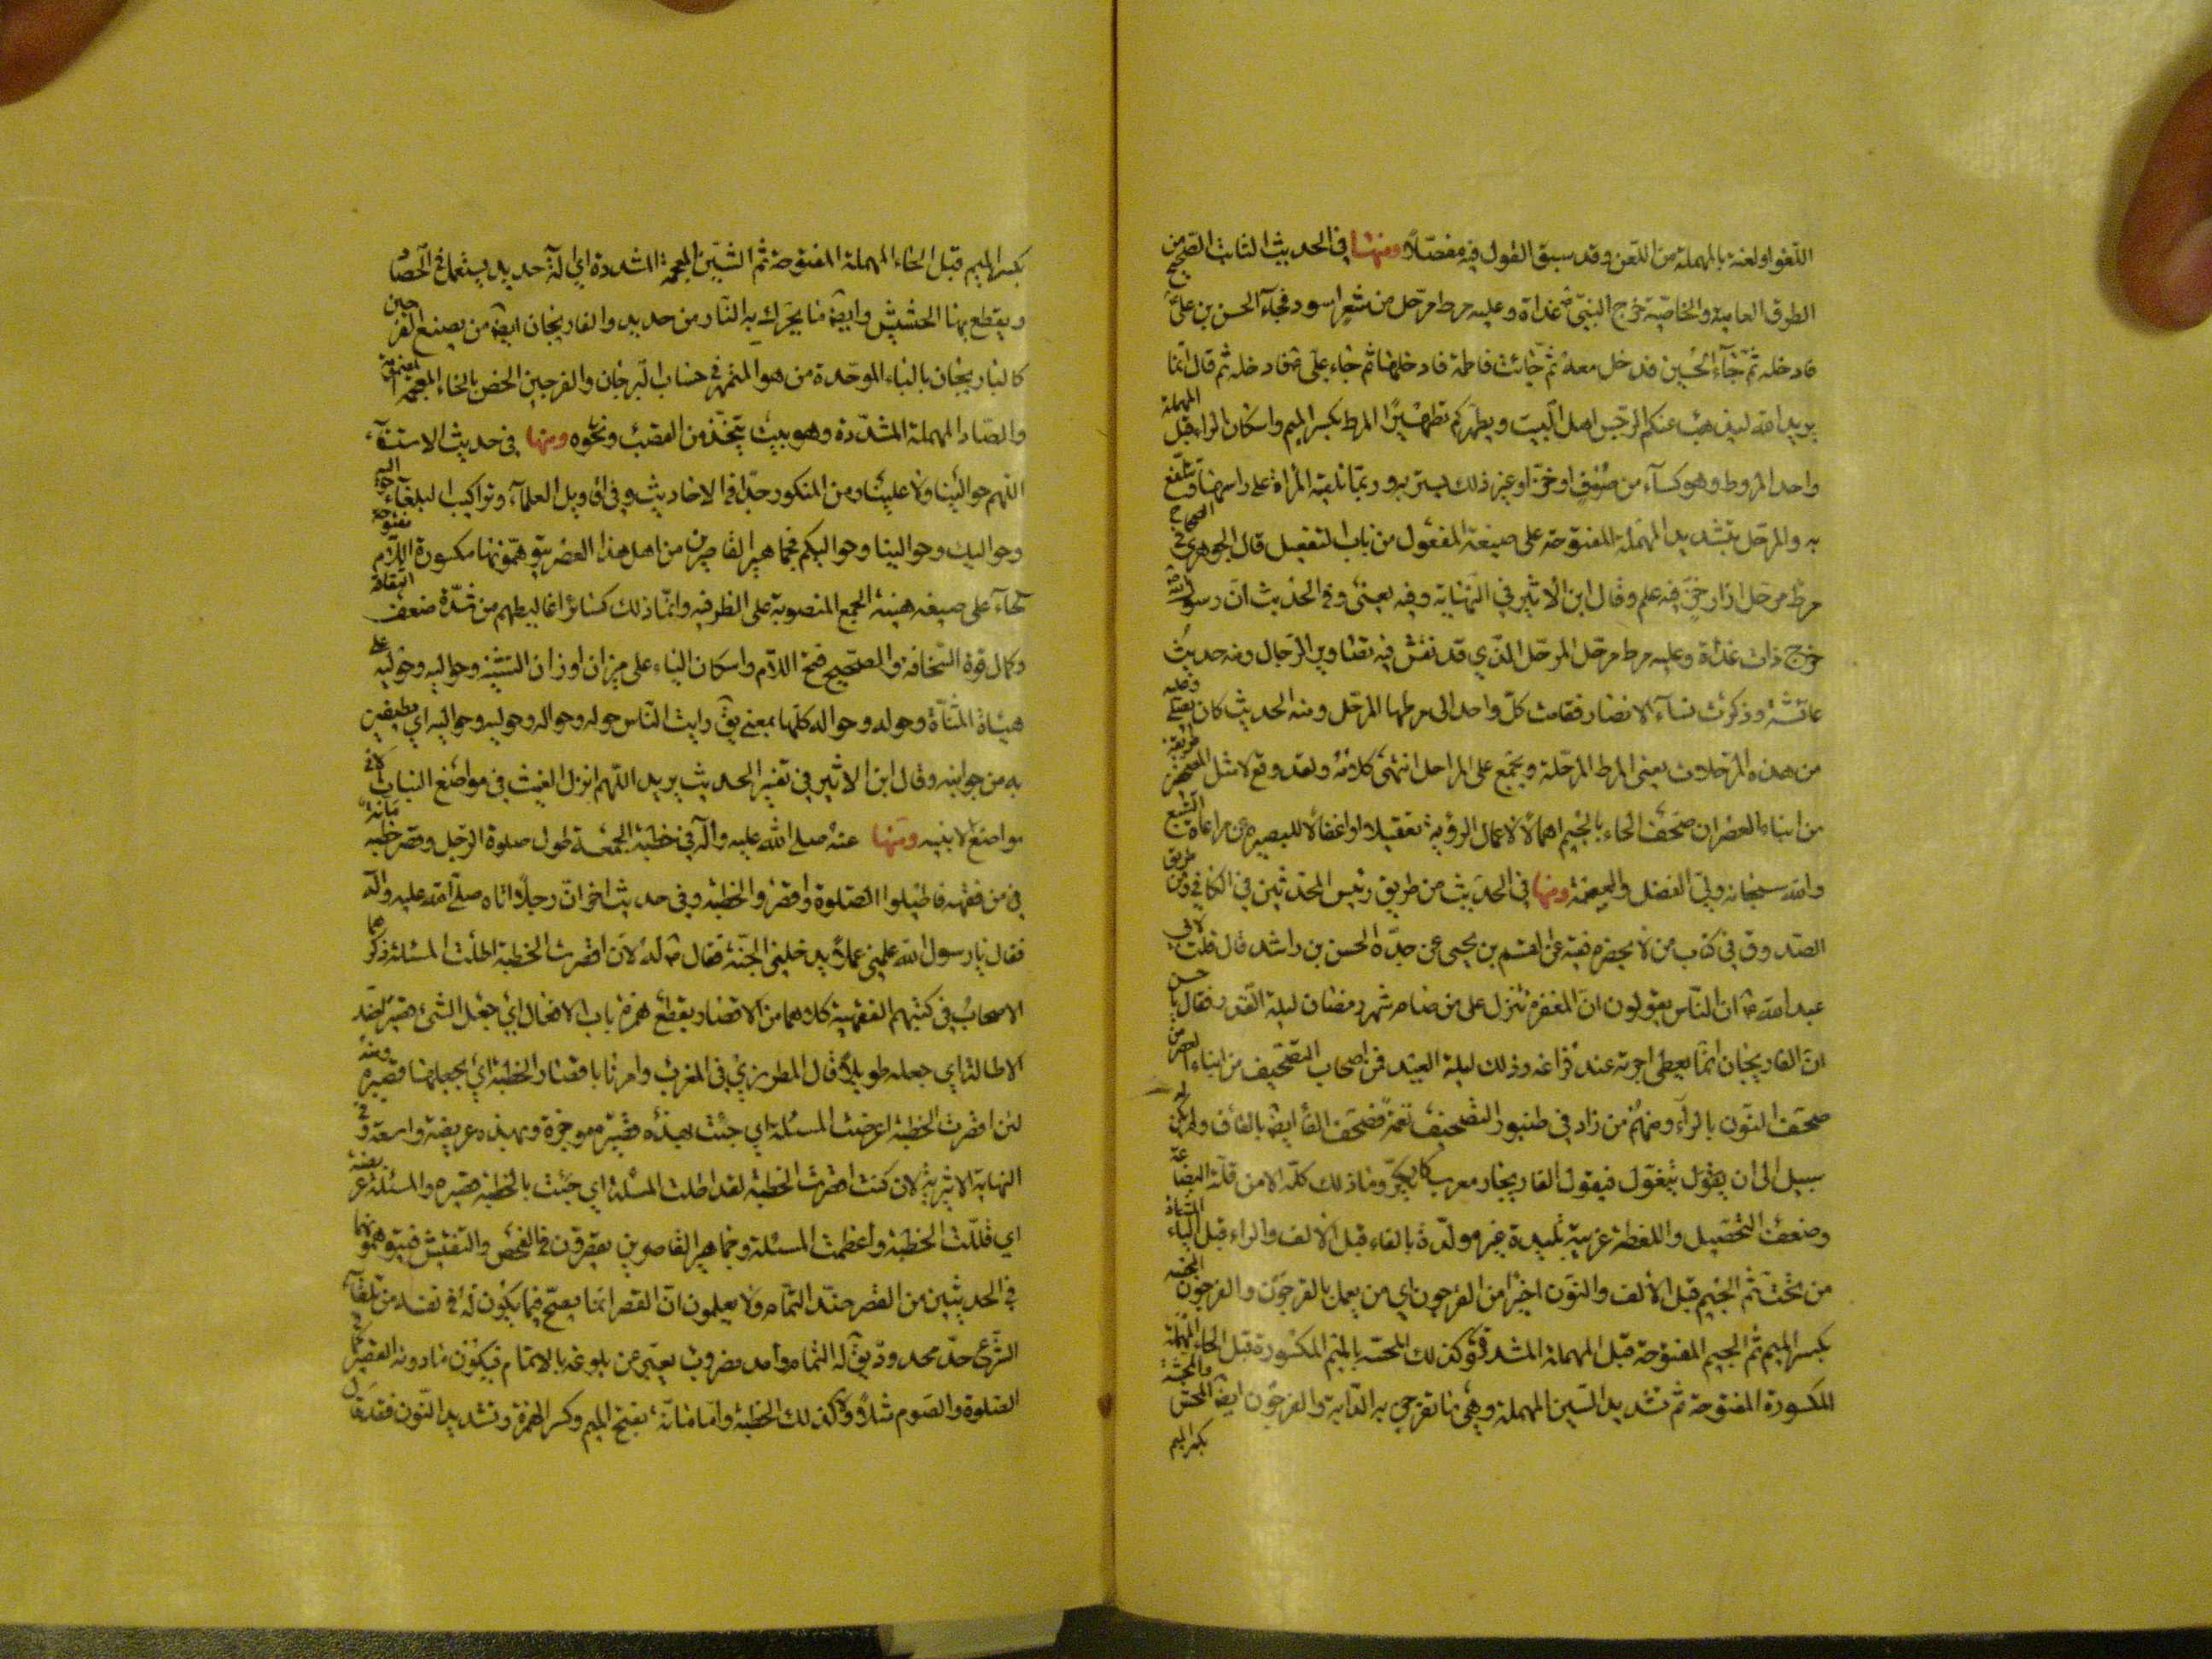 اللغو او لغنة بالمهملة من اللعن وقد سبق القول فيه مفصّلاً ومنها في الحديث الثابت الصحيح من
الطرق العامية والخاصّية خرج النبيّ ص غداة وعليه مرط مرحّل من شعر اسود فجاء الحسن بن علي
فادخله ثمّ جاء الحسين فدخل معه ثم جائت فاطمة فادخلها ثم جاء علي فادخله ثم قال انما
يريد الله ليذهب عنكم الرجس اهل البيت ويطهركم تطهيرًا المرط بكسر الميم واسكان الراء قبل المهملة
واحد المروط وهو كساء من صوف او خزّ او غير ذلك يتزر به وربما تلقيه المرأة على راسها وتتلفع
به والمرحّل بتشديد المهملة المفتوحة على صيغة المفعول من باب التفعيل قال الجوهري في الصحاح
مرط مرحّل ازار خزّ فيه علم وقال ابن الاثير في النهاية وفيه يعني وفي الحديث انّ رسول الله
خرج ذات غداة وعليه مرط مرحّل المرحّل الذي قد نقش فيه تصاوير الرحال ومنه حديث
عائشة وذكرت نساء الانصار فقامت كلّ واحد الى مرطها المرحّل ومنه الحديث كان يصلي وعليه
من هذه المرحّلات يعني المرط المرحّلة ويجمع على المراحل انتهى كلامه ولقد وقع
من ابناء العصر ان صحّف الحاء بالجيم اهمالاً لاعمال الروية او اغفالاً للبصيرة عن مراعاة
والله سبحانه وليّ الفضل والعصمة ومنها في الحديث من طريق رئيس المحدّثين في الكافي ومن طريق
الصدوق في كتاب من لا يحضره الفقيه عن القسم بن يحيى عن جدّه الحسن بن راشد قال قلت لابي
عبد الله ع ان النّاس يقولون ان المغفرة تنزل على من صام شهر رمضان ليلة القدر فقال يا حسن
انّ الفاريجان انما يعطى اجرته عند فراغه وذلك ليلة العيد فمن اصحاب التصحيف من ابناء العصر من
صحّف النون بالراء ومنهم من زاد في طنبور التصحيف نغمة فصحّف الفاء ايضا بالقاف ولم يكن له
سبيل الى ان يقول فيقول الفاريجار معرب وما ذلك كلّه الا من قلّة البضاعة
وضعف التحصيل واللفظة عربية غير مولّدة بالفاء قبل الالف والراء قبل الياء المثناة
من تحت ثم الجيم قبل الالف والنون اخيرًا من الفرجون اي من يعمل بالفرجون والفرجون المحسّة
بكسر الميم ثم الجيم المفتوحة قبل المهملة المشددة وكذلك المحسّة بالميم المكسورة قبل الحاء المهملة
المكسورة المفتوحة ثم تشديد السين المهملة وهي ما تفرجن به الدابة والفرجون ايضا المحش والمحشة
بكسر الميم
بكسر الميم قبل الحاء المهملة المفتوحة ثم الشين المعجمة المشددة اي الة حديد يستعمل في الحصاد
ويقطع بها الحشيش وايضا ما يحرّك به النار من حديد والفاريجان ايضا من يصنع الفرجين
كالباريجان بالباء الموحّدة من هو المتمهر في حساب البرجان والفرجين الخص بالخاء المعجمة المضمومة
والصّاد المهملة المشدّدة وهو بيت يتخذ من القصب ونحوه ومنها في حديث الاستسقاء
اللهم حوالينا ولا علينا ومن المتكرر جدّا في الاحاديث وفي اقاويل العلماء وتراكيب البلغاء حواليه
وحواليك وحوالينا وحواليكم فجماهير القاصرين من اهل هذا العصر يتوهّمونها مكسورة اللام مفتوحة
الحاء على صيغة هيئة الجمع المنصوبة على الظرفية وانّما ذلك كسائر اغاليطهم من شدّة ضعف الثقافة
وكمال قوة السخافة والصحيح فتح اللام واسكان الياء على ميزان اوزان التثنية وحواليه وحوليه على
هيئاة المثنّاة وحوله وحواله كلّها بمعنى يق رايت النّاس حوله وحواله وحوليه وحواليه اي مطيفين
به من جوانبه وقال ابن الاثير في تفسير الحديث يريد اللهم انزل الغيث في مواضع النبات لا في
مواضع الابنية ومنها عنه صلى الله عليه وآله في خطبة الجمعة طول صلوة الرجل وقصر خطبه مئنة
في من فقهه فاطيلوا الصلوة واقصروا الخطبة وفي حديث اخر انّ رجلاً اتاه صلى الله عليه وآله
فقال يا رسول الله علمني عملاً يدخلني الجنّة فقال ص له لان اقصرت الخطبة اطلت المسئلة ذكرهما
الاصحاب في كتبهم الفقهية كلاهما من الاقصار بقطع همزة باب الافعال اي جعل الشئ قصيرا ضد
الاطالة اي جعله طويلاً قال المطرزي في المغرب وامرنا باقصار الخطبة اي بجعلها قصيرة ومنه
لئن اقصرت الخطبة اعرضت المسئلة اي جئت بهذه قصيرة موجزة وبهذه عريضة واسعة وفي
النهاية الاثيرية لان كنت اقصرت الخطبة لقد اطلت المسئلة اي جئت بالخطبة قصيرة والمسئلة عريضة
اي قلّلت الخطبة واعظمت المسئلة وجماهير القاصرين يقصّرون في الفحص والتفتيش فيتوهمونها
في الحديثين من القصر ضدّ التمام ولا يعلمون انّ القصر انما يصحّ فيما يكون له في نفسه من تلقاء
الشرع حدّ محدود يق له التمام وامد مضروب يعبّر عن بلوغه بالاتمام فيكون ما دونه القصر كما في
الصلوة والصوم مثلاً ولا كذلك الخطبة وامّا مئنّة بفتح الميم وكسر الهمزة وتشديد النون فقد قال